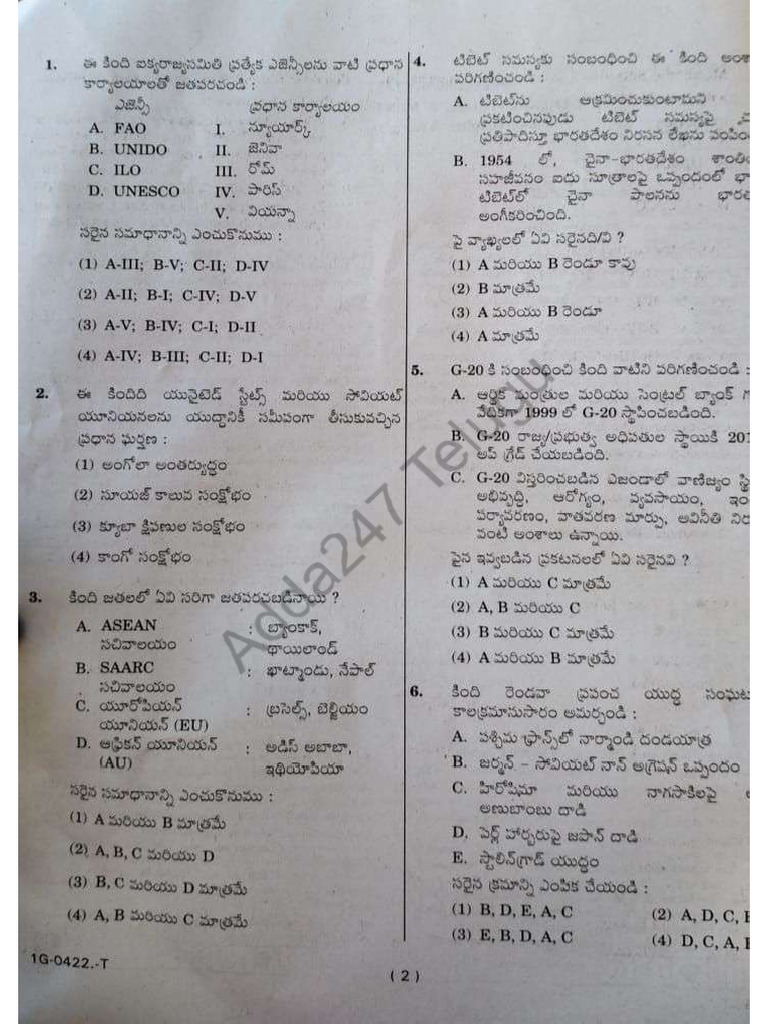 1. ఈ కింది ఐక్యరాజ్యసమితి ప్రత్యేక ఏజెన్సీలను వాటి ప్రధాన
కార్యాలయాలతో జతపరచండి :
ఏజెన్సీ ప్రధాన కార్యాలయం
A. FAO I. న్యూయార్క్
B. UNIDO II. జెనీవా
C. ILO III. రోమ్
D. UNESCO IV. పారిస్
V. వియన్నా
సరైన సమాధానాన్ని ఎంచుకొనుము :
(1) A-III; B-V; C-II; D-IV
(2) A-II; B-I; C-IV; D-V
(3) A-V; B-IV; C-I; D-II
(4) A-IV; B-III; C-II; D-I
2. ఈ కిందిది యునైటెడ్ స్టేట్స్ మరియు సోవియట్
యూనియనలను యుద్ధానికీ సమీపంగా తీసుకువచ్చిన
ప్రధాన ఘర్షణ :
(1) అంగోలా అంతర్యుద్ధం
(2) సూయజ్ కాలువ సంక్షోభం
(3) క్యూబా క్షిపణుల సంక్షోభం
(4) కాంగో సంక్షోభం
3. కింది జతలలో ఏవి సరిగా జతపరచబడినాయి ?
A. ASEAN : బ్యాంకాక్,
సచివాలయం థాయిలాండ్
B. SAARC : ఖాట్మాండు, నేపాల్
సచివాలయం
C. యూరోపియన్ : బ్రసెల్స్, బెల్జియం
యూనియన్ (EU)
D. ఆఫ్రికన్ యూనియన్ : అడిస్ అబాబా,
(AU) ఇథియోపియా
సరైన సమాధానాన్ని ఎంచుకొనుము :
(1) A మరియు B మాత్రమే
(2) A, B, C మరియు D
(3) B, C మరియు D మాత్రమే
(4) A, B మరియు C మాత్రమే
1G-0422.-T
4. టిబెట్ సమస్యకు సంబంధించి ఈ కింది
పరిగణించండి :
A. టిబెట్‌ను ఆక్రమించుకుంటామని
ప్రకటించినపుడు టిబెట్ సమస్యపై
ప్రతిపాదిస్తూ భారతదేశం నిరసన లేఖను
B. 1954 లో, చైనా-భారతదేశం
సహజీవనం ఐదు సూత్రాలపై ఒప్పందంలో
టిబెట్‌లో చైనా పాలనను
అంగీకరించింది.
పై వ్యాఖ్యలలో ఏవి సరైనది/వి ?
(1) A మరియు B రెండూ కావు
(2) B మాత్రమే
(3) A మరియు B రెండూ
(4) A మాత్రమే
5. G-20 కి సంబంధించి కింది వాటిని పరిగణించండి :
A. ఆర్థిక మంత్రుల మరియు సెంట్రల్ బ్యాంక్
వేదికగా 1999 లో G-20 స్థాపించబడింది.
B. G-20 రాజ్య/ప్రభుత్వ అధిపతుల స్థాయికి
అప్ గ్రేడ్ చేయబడింది.
C. G-20 విస్తరించబడిన ఎజండాలో వాణిజ్యం
అభివృద్ధి, ఆరోగ్యం, వ్యవసాయం,
పర్యావరణం, వాతవరణ మార్పు, అవినీతి
వంటి అంశాలు ఉన్నాయి.
పైన ఇవ్వబడిన ప్రకటనలలో ఏవి సరైనవి ?
(1) A మరియు C మాత్రమే
(2) A, B మరియు C
(3) B మరియు C మాత్రమే
(4) A మరియు B మాత్రమే
6. కింది రెండవా ప్రపంచ యుద్ధ
కాలక్రమానుసారం అమర్చండి :
A. పశ్చిమ ఫ్రాన్స్‌లో నార్మాండి దండయాత్ర
B. జర్మన్ – సోవియట్ నాన్ అగ్రెషన్ ఒప్పందం
C. హిరోషిమా మరియు నాగసాకిలపై
అణుబాంబు దాడి
D. పెర్ల్ హార్బరుపై జపాన్ దాడి
E. స్టాలిన్‌గ్రాడ్ యుద్ధం
సరైన క్రమాన్ని ఎంపిక చేయండి :
(1) B, D, E, A, C (2) A, D, C,
(3) E, B, D, A, C (4) D, C, A,
( 2 )
Adda247 Telugu